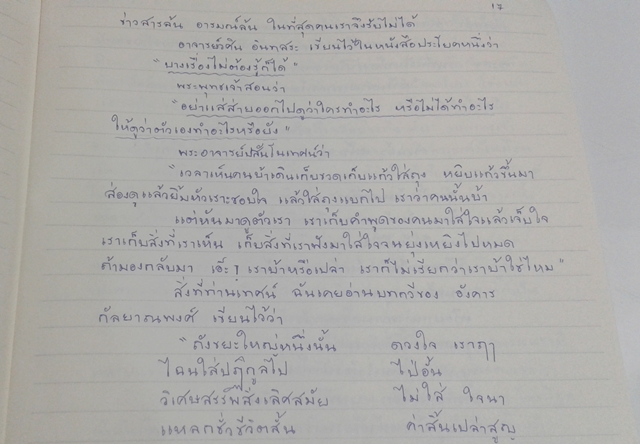 17
ข่าวสารล้น อารมณ์ล้น ในที่สุดคนเราจึงรับไม่ได้
อาจารย์วศิน อินทสระ เขียนไว้ในหนังสือประโยคหนึ่งว่า
"บางเรื่องไม่ต้องรู้ก็ได้"
พระพุทธเจ้าสอนว่า
"อย่าแส่ส่ายออกไปดูว่าใครทำอะไร หรือไม่ได้ทำอะไร
ให้ดูว่าตัวเองทำอะไรหรือยัง"
พระอาจารย์ปสันโนเทศน์ว่า
"เวลาเห็นคนบ้าเดินเก็บขวดเก็บแก้วใส่ถุง หยิบแก้วขึ้นมา
ส่องดูแล้วยิ้มหัวเราะชอบใจ แล้วใส่ถุงแบกไป เราว่าคนนั้นบ้า
แต่หันมาดูตัวเรา เราเก็บคำพูดของคนมาใส่ใจแล้วเจ็บใจ
เราเก็บสิ่งที่เราเห็น เก็บสิ่งที่เราฟังมาใส่ใจจนยุ่งเหยิงไปหมด
ถ้ามองกลับมา เอ๊ะ! เราบ้าหรือเปล่า เราก็ไม่เรียกว่าเราบ้าใช่ไหม"
สิ่งที่ท่านเทศน์ ฉันเคยอ่านบทกวีของ อังคาร
กัลยาณพงศ์ เขียนไว้ว่า
"ถังขยะใหญ่หนึ่งนั้น ดวงใจ เราฤๅ
ไฉนใส่ปฏิกูลไป ไป่อั้น
วิเศษสรรพสิ่งเลิศสมัย ไม่ใส่ ใจนา
แหลกชั่วชีวิตสั้น ค่าสิ้นเปล่าสูญ